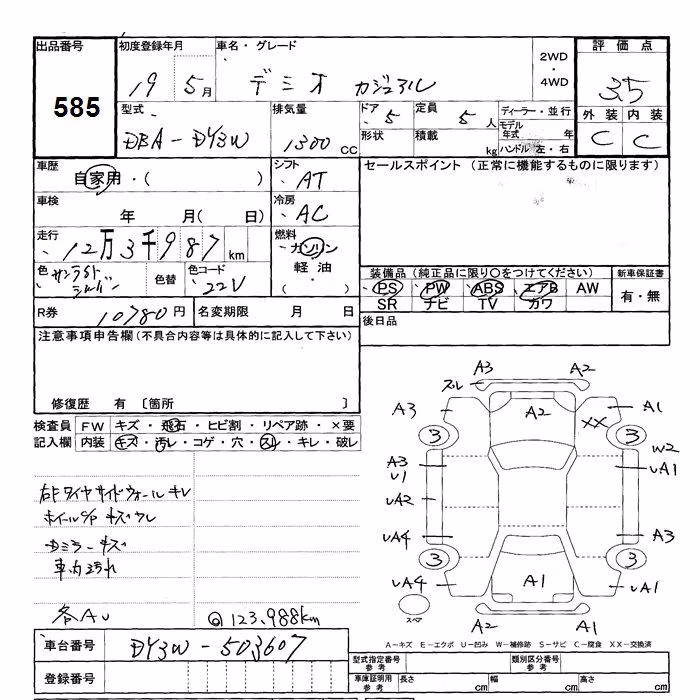 出品番号
585
初度登録年月
19 5月
車名・グレード
デミオ カジュアル
2WD
・
4WD
評価点
3.5
外装 内装
C C
型式
DBA-DY3W
排気量
1300 CC
ドア 5
形状
定員 5 人
積載 kg
ディーラー・並行
モデル年式 年
ハンドル 左・右
車歴
自家用・( )
シフト
AT
セールスポイント (正常に機能するものに限ります)
車検
年 月( 日)
冷房
AC
走行
12万3千987km
燃料
ガソリン
軽油
・
色
サンライトシルバー
色替
色コード
22V
装備品 (純正品に限り○をつけてください)
PS PW ABS エアB AW
SR ナビ TV カワ
新車保証書
有・無
R券 10780円
名変期限 月 日
後日品
注意事項申告欄(不具合内容等は具体的に記入して下さい)
修復歴 有 〔箇所 〕
検査員記入欄
FW キズ・飛石・ヒビ割・リペア跡・×要
内装 キズ・汚レ・コゲ・穴・スレ・キレ・破レ
右Fタイヤサイドウォールキレ
ホイールC/Pキズワレ
Dミラーキズ
車内汚れ
各AU
@123,988km
A3 A2
スレ
A3 A2 XX A1
3 3
W2
A3 UA1
U1
UA2
UA4 A3
3 3
UA4 A1 UA1
スペア
A2 A1
A-キズ E-エクボ U-凹み W-補修跡 S-サビ C-腐食 XX-交換済
車台番号 DY3W-503607
登録番号
型式指定番号
参考
類別区分番号
参考
車庫証明用
参考
長さ cm 幅 cm 高さ cm